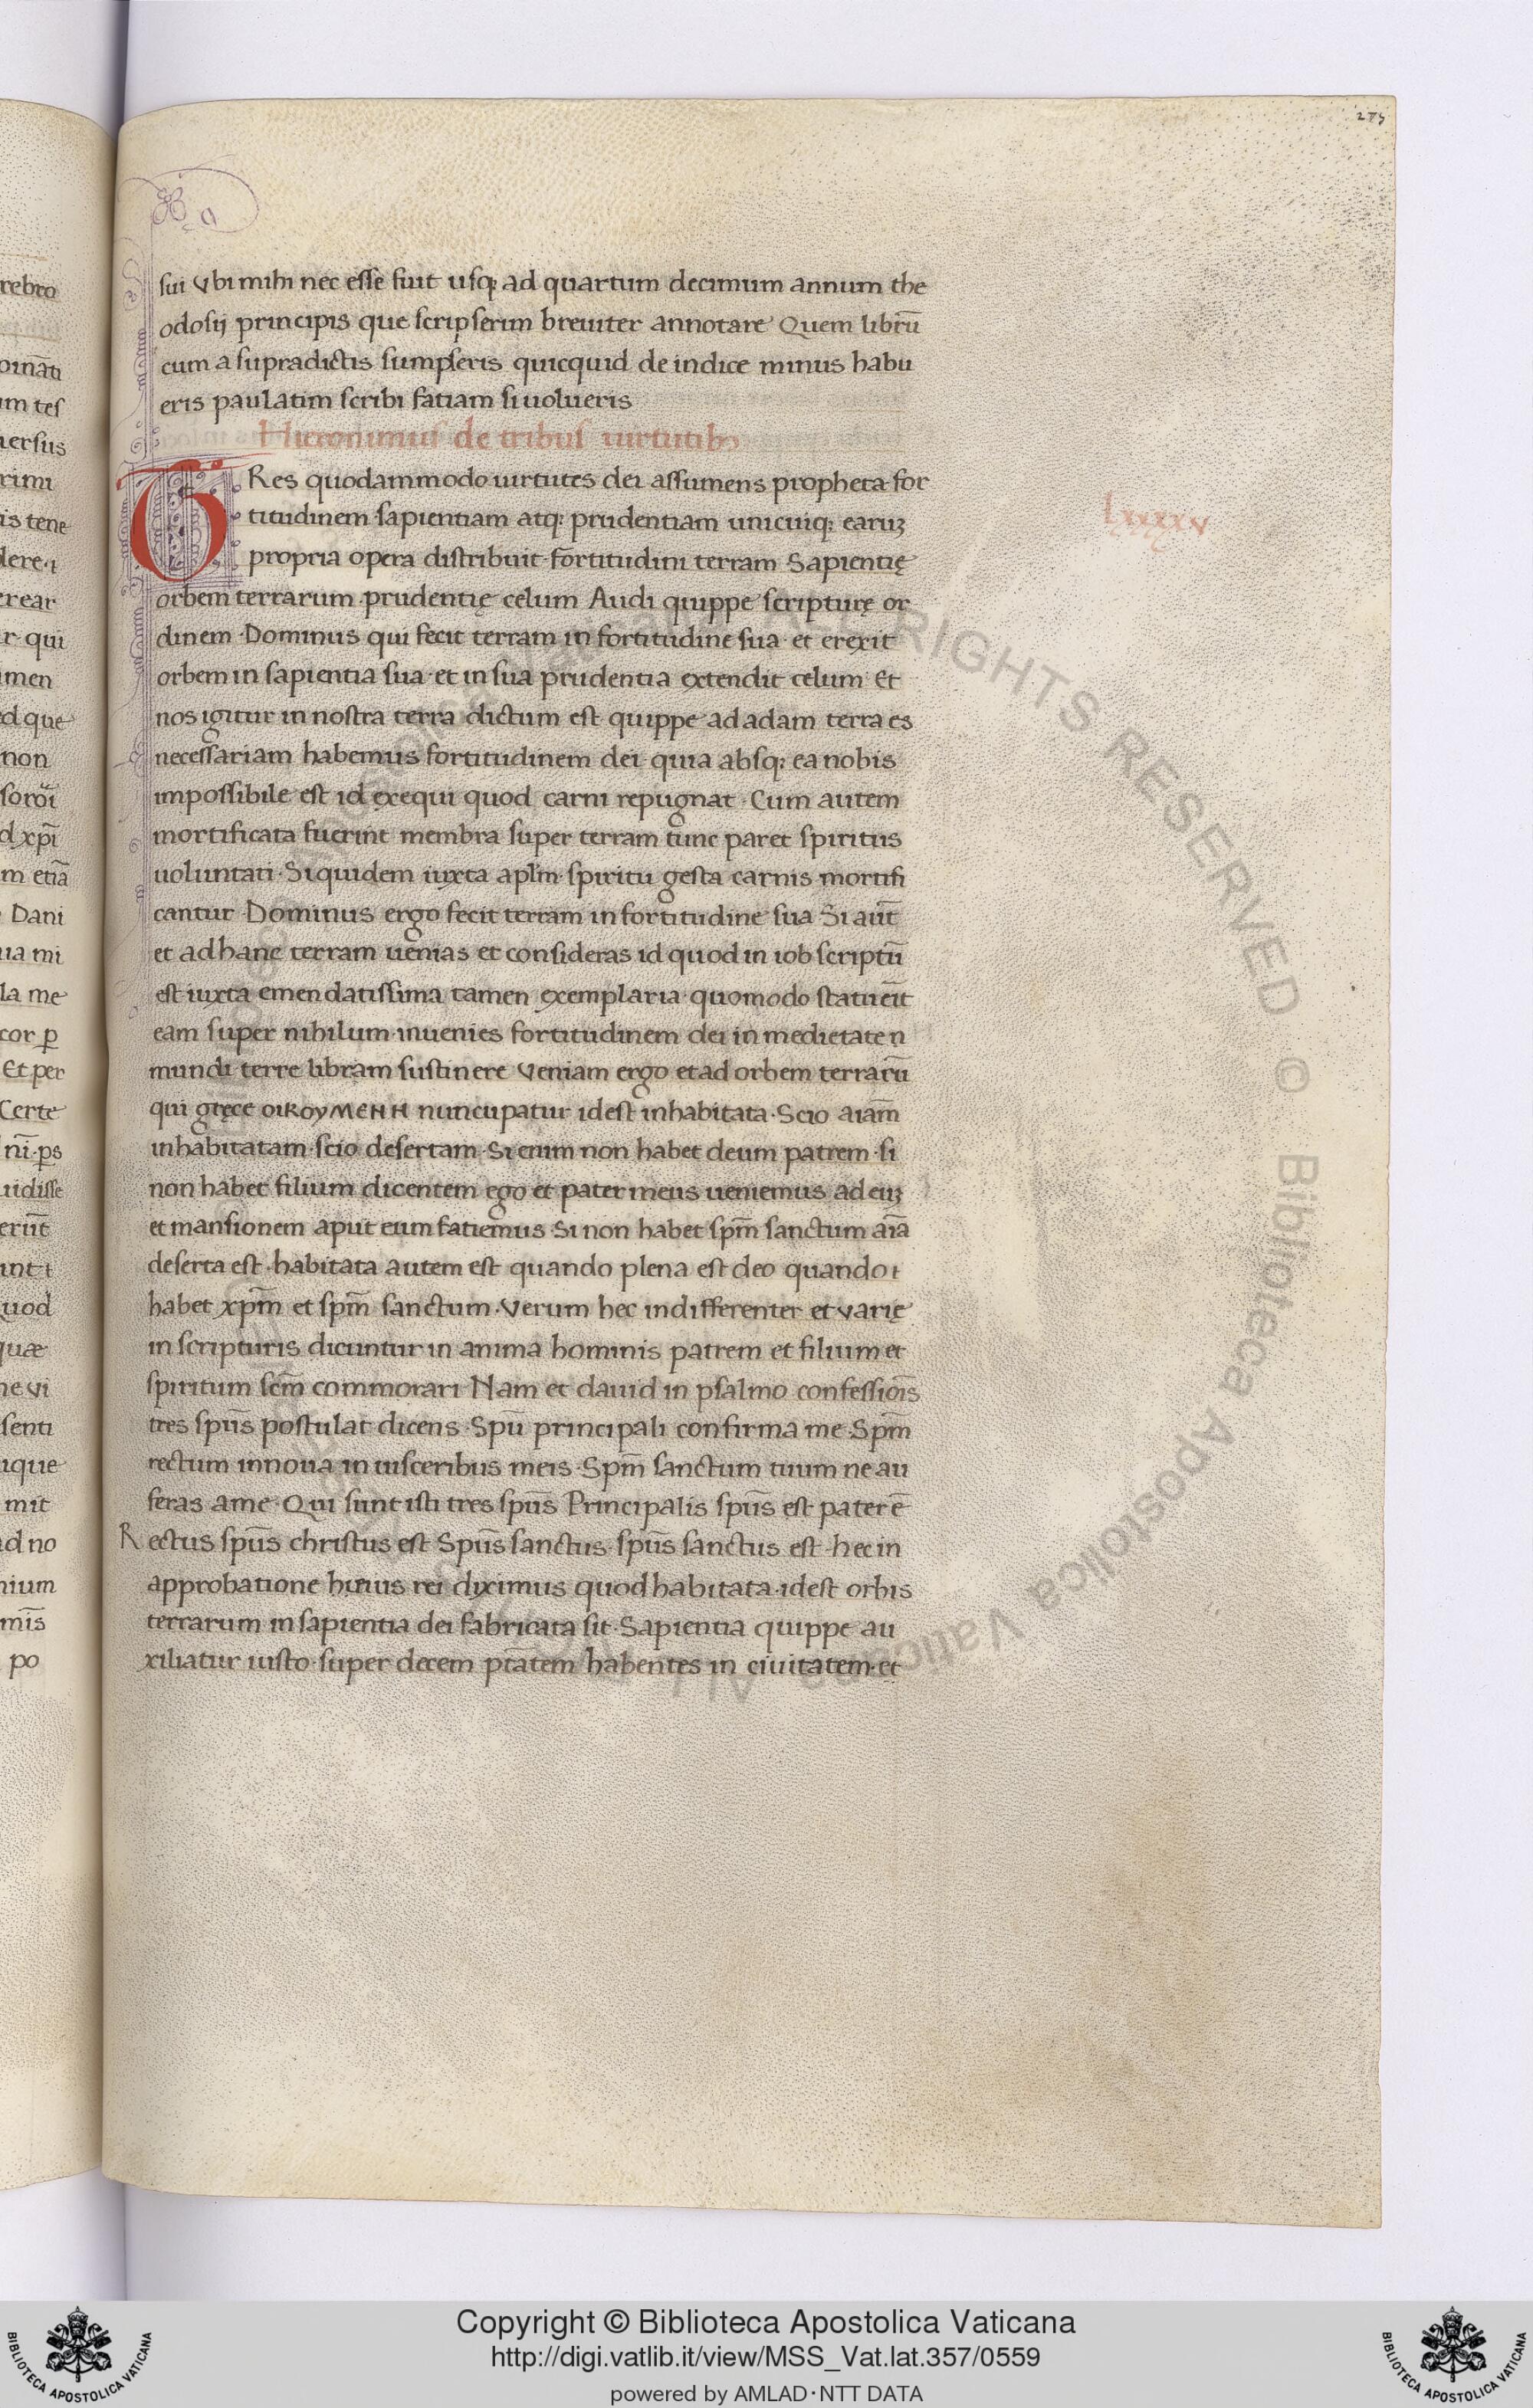 275
sui Vbi mihi nec esse fuit usq; ad quartum decimum annum the
odosij principis que scripserim breuiter annotare Quem librū
cum a supradictis sumpseris quicquid de indice minus habu
eris paulatim scribi fatiam si uolueris
Hieronimus de tribus uirtutibꝫ
TRes quodammodo uirtutes dei assumens propheta for
titudinem sapientiam atq; prudentiam unicuiq; earuꝫ
lxxxxv
propria opera distribuit fortitudini terram Sapientię
orbem terrarum prudentię celum Audi quippe scripturę or
dinem · Dominus qui fecit terram in fortitudine sua · et erexit
orbem in sapientia sua · et in sua prudentia extendit celum Et
nos igitur in nostra terra dictum est quippe ad adam terra es
necessariam habemus fortitudinem dei quia absq; ea nobis
impossibile est id exequi quod carni repugnat · Cum autem
mortificata fuerint membra super terram tunc paret spiritus
uoluntati · Siquidem iuxta aplm̄ · spiritu gesta carnis mortifi
cantur · Dominus ergo fecit terram in fortitudine sua Si aut̄
et ad hanc terram uenias et consideras id quod in iob scriptū
est iuxta emendatissima tamen exemplaria · quomodo statueīt
eam super nihilum · inuenies fortitudinem dei in medietate n
mundi · terre libram sustinere Veniam ergo et ad orbem terrarū
qui gręce οικουμενη nuncupatur idest inhabitata · Scio aiam̄
inhabitatam · scio desertam · Si enim non habet deum patrem · si
non habet filium dicentem ego et pater meus ueniemus ad euꝫ
et mansionem aput eum fatiemus · Si non habet spm̄ sanctum aiā
deserta est · habitata autem est quando plena est deo quando ı
habet xpm̄ et spm̄ sanctum · Verum hec indifferenter et varię
in scripturis dicuntur in anima hominis patrem et filium et
spiritum scm̄ commorari Nam et dauid in psalmo confessiois̄
tres spūs postulat dicens · Spū principali confirma me · Spm̄
rectum innoua in uisceribus meis · Spm̄ sanctum tuum ne au
feras a me · Qui sunt isti tres spūs Principalis spūs est pater ē
Rectus spūs christus est Spūs sanctus · spūs sanctus est · hec in
approbatione huius rei diximus quod habitata · idest orbis
terrarum in sapientia dei fabricata sit · Sapientia quippe au
xiliatur iusto · super decem ptātem habentes in ciuitatem · et
ALL RIGHTS RESERVED © Biblioteca Apostolica Vaticana
Copyright © Biblioteca Apostolica Vaticana
http://digi.vatlib.it/view/MSS_Vat.lat.357/0559
powered by AMLAD · NTT DATA
BIBLIOTECA APOSTOLICA VATICANA
BIBLIOTECA APOSTOLICA VATICANA